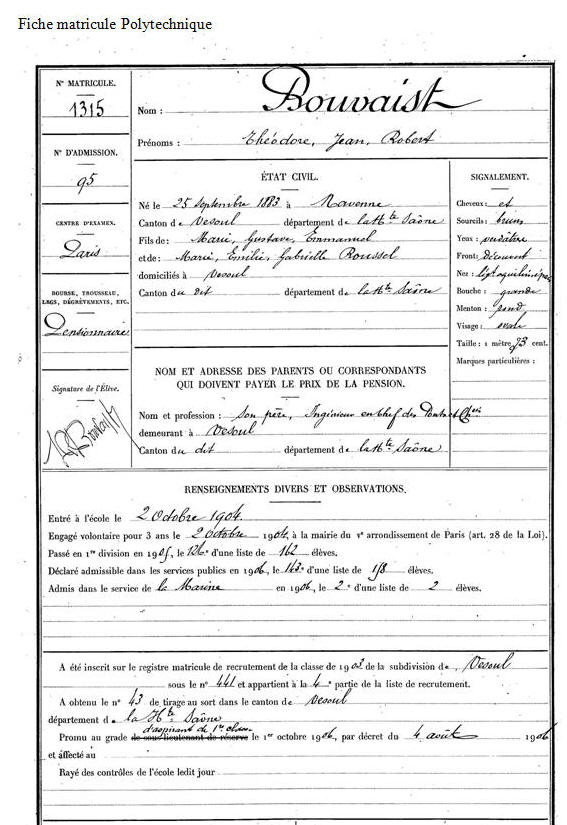 Fiche matricule Polytechnique
N° MATRICULE.
1315
N° D'ADMISSION.
95
CENTRE D'EXAMEN.
Paris
BOURSE, TROUSSEAU,
LEGS, DÉGRÈVEMENTS, ETC.
Pensionnaire
Signature de l'Élève.
Nom : Bouvaist
Prénoms : Théodore, Jean, Robert
ÉTAT CIVIL.
Né le 25 septembre 1883 à Navenne
Canton de Vesoul département de la Hte Saône
Fils de : Marie, Gustave, Emmanuel
et de : Marie, Emilie, Gabrielle Roussel
domiciliés à Vesoul
Canton du dit département de la Hte Saône
SIGNALEMENT.
Cheveux : et
Sourcils : bruns
Yeux : verdâtre
Front : découvert
Nez :
Bouche : grande
Menton : rond
Visage : ovale
Taille : 1 mètre 73 cent.
Marques particulières :
NOM ET ADRESSE DES PARENTS OU CORRESPONDANTS
QUI DOIVENT PAYER LE PRIX DE LA PENSION.
Nom et profession : son père, Ingénieur en chef des Ponts et Chées
demeurant à Vesoul
Canton du dit département de la Hte Saône
RENSEIGNEMENTS DIVERS ET OBSERVATIONS.
Entré à l'école le 2 Octobre 1904.
Engagé volontaire pour 3 ans le 2 octobre 1904, à la mairie du Ve arrondissement de Paris (art. 28 de la Loi).
Passé en 1re division en 1905, le 126e d'une liste de 162 élèves.
Déclaré admissible dans les services publics en 1906, le 143e d'une liste de 158 élèves.
Admis dans le service de la Marine en 1906, le 2e d'une liste de 2 élèves.
A été inscrit sur le registre matricule de recrutement de la classe de 1903 de la subdivision de Vesoul
sous le n° 441 et appartient à la 4e partie de la liste de recrutement.
A obtenu le n° 43 de tirage au sort dans le canton de Vesoul
département de la Hte Saône
d'aspirant de 1re classe
Promu au grade de sous-lieutenant de réserve le 1er octobre 1906, par décret du 4 août 1906
et affecté au
Rayé des contrôles de l'école ledit jour